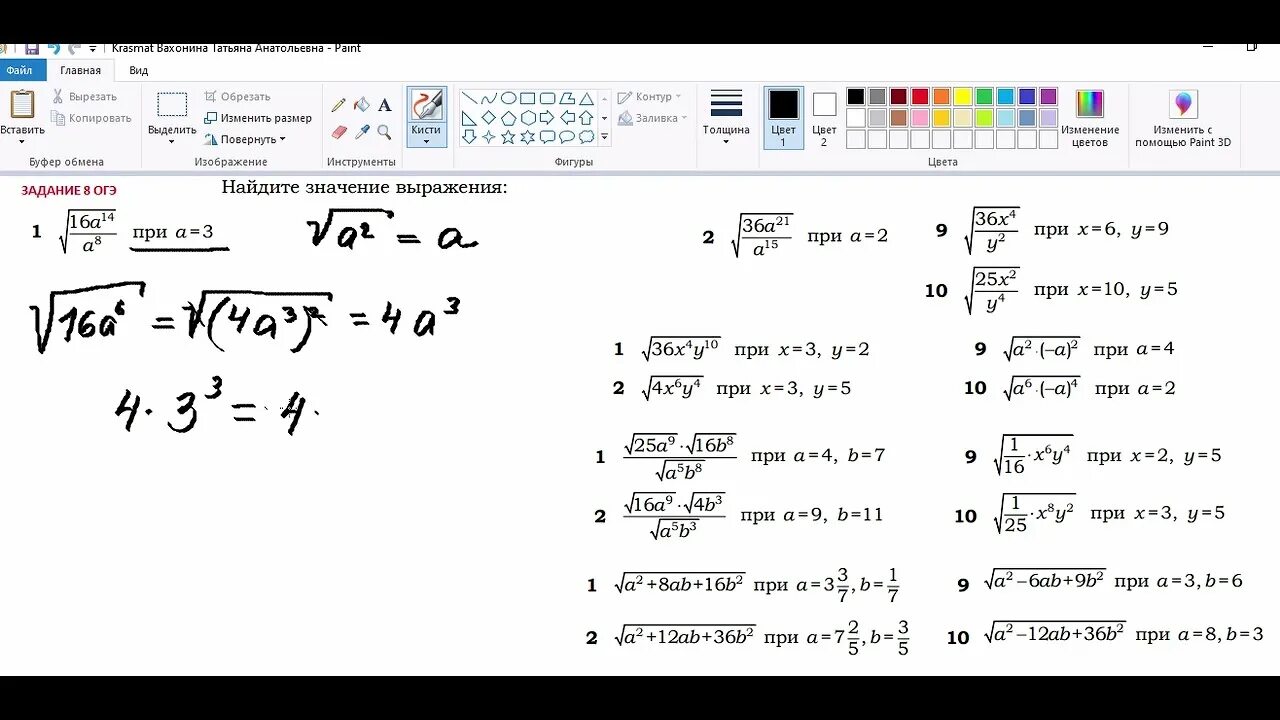 Krasmat Вахонина Татьяна Анатольевна - Paint
Файл Главная Вид
Вставить
Вырезать
Копировать
Буфер обмена
Выделить
Обрезать
Изменить размер
Повернуть
Изображение
A
Инструменты
Кисти
Контур
Заливка
Фигуры
Толщина
Цвет 1
Цвет 2
Изменение цветов
Цвета
Изменить с помощью Paint 3D
ЗАДАНИЕ 8 ОГЭ
Найдите значение выражения:
1 √(16a¹⁴/a⁸) при a=3
√a² = a
√16a⁶ = √(4a³)² = 4a³
4 · 3³ = 4 ·
2 √(36a²¹/a¹⁵) при a=2
9 √(36x⁴/y²) при x=6, y=9
10 √(25x²/y⁴) при x=10, y=5
1 √(36x⁴y¹⁰) при x=3, y=2
9 √(a²·(–a)²) при a=4
2 √(4x⁶y⁴) при x=3, y=5
10 √(a⁶·(–a)⁴) при a=2
1 √(25a⁹)·√(16b⁸)/√(a⁵b⁸) при a=4, b=7
9 √(1/16·x⁶y⁴) при x=2, y=5
2 √(16a⁹)·√(4b³)/√(a⁵b³) при a=9, b=11
10 √(1/25·x⁸y²) при x=3, y=5
1 √(a²+8ab+16b²) при a=3 3/7, b=1/7
9 √(a²–6ab+9b²) при a=3, b=6
2 √(a²+12ab+36b²) при a=7 2/5, b=3/5
10 √(a²–12ab+36b²) при a=8, b=3